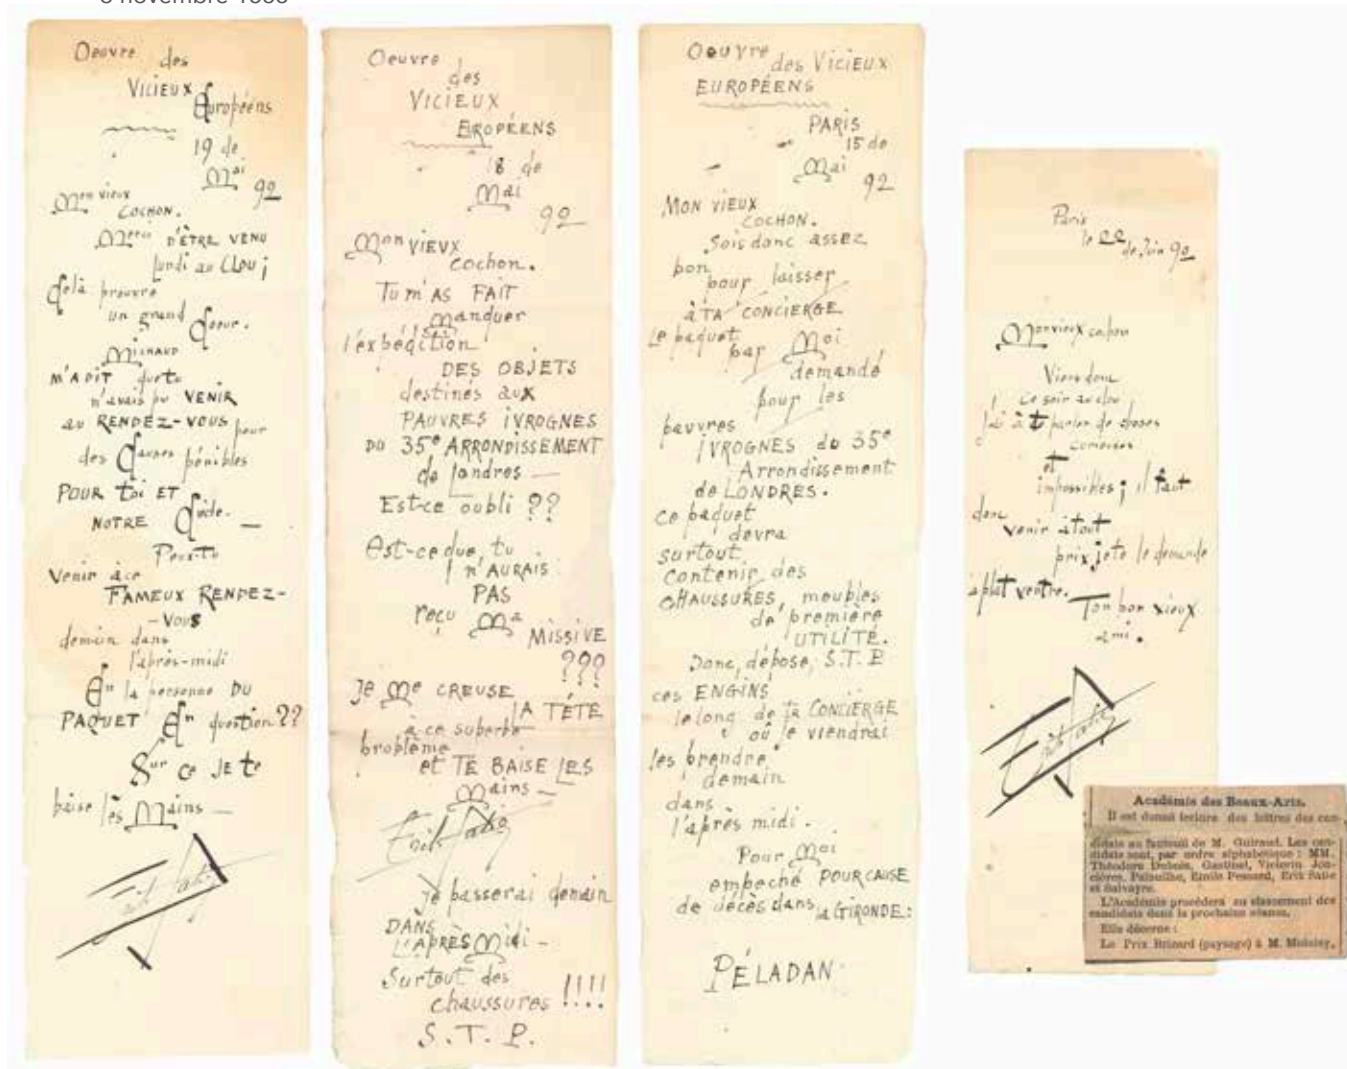 Oeuvre
des
VICIEUX
Européens
19 de
Mai
92
Mon vieux
COCHON.
Merci D'ÊTRE VENU
lundi au CLOU ;
Celà prouve
un grand Coeur.
MIGNAUD
M'A DIT que tu
n'avais pu VENIR
au RENDEZ-VOUS pour
des Causes pénibles
POUR toi ET
NOTRE Cude. —
Peux-tu
Venir à ce
FAMEUX RENDEZ-
-VOUS
demain dans
l'après-midi
En la personne DU
PAQUET En question ??
Sur ce JE te
baise lès Mains —
Erik Satie
Oeuvre
des
VICIEUX
EROPÉENS
18 de
Mai
92
Mon VIEUX
cochon.
TU M'AS FAIT
Manquer
l'expédition
DES OBJETS
destinés aux
PAUVRES IVROGNES
DU 35e ARRONDISSEMENT
de Londres —
Est-ce oubli ??
Est-ce que, tu
n'AURAIS
PAS
reçu Ma
MISSIVE
???
Je Me CREUSE
LA TÉTE
à ce superbe
problème
et TE BAISE LES
Mains —
Erik Satie
Je passerai demain
DANS
L'APRÈS Midi —
Surtout des
chaussures !!!!
S.T.P.
Oeuvre
des VICIEUX
EUROPÉENS
PARIS
15 de
Mai
92
MON VIEUX
COCHON.
Sois donc assez
bon
pour laisser
À TA CONCIERGE
Le paquet
par Moi
demandé
pour les
pauvres
IVROGNES du 35e
Arrondissement
de LONDRES.
Ce paquet
devra
surtout
contenir des
CHAUSSURES, meubles
de première
UTILITÉ.
Donc, dépose, S.T.P
ces ENGINS
le long de ta CONCIERGE
où je viendrai
les prendre
demain
dans
l'après midi.
Pour Moi
empeché POUR CAUSE
de décès dans la GIRONDE :
PÉLADAN
Paris
le 22
de Juin 92
Mon vieux cochon
Viens donc
ce soir au clou
J'ai à te parler de choses
et
impossibles ; il faut
donc
venir à tout
prix, je te le demande
à plat ventre.
Ton bon vieux
ami.
Erik Satie
Académie des Beaux-Arts.
Il est donné lecture des lettres des can-
didats au fauteuil de M. Guiraud. Les can-
didats sont, par ordre alphabétique : MM.
Théodore Dubois, Gastinel, Victorin Jon-
cières, Paladilhe, Emile Pessard, Erik Satie
et Salvayre.
L'Académie procédera au classement des
candidats dans la prochaine séance.
Elle décerne :
Le Prix Brizard (paysage) à M.